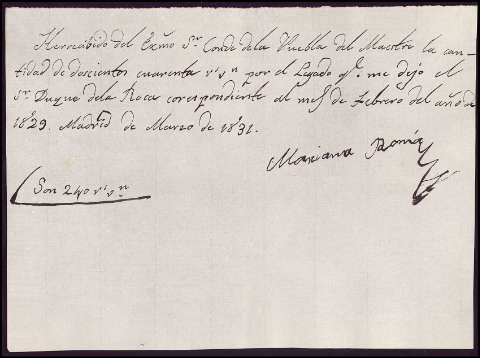 He rrecibido del Exmo Sr Conde dela Puebla del Maestre la can-
tidad de doscientos cuarenta rs vn por el Legado qe. me dejo el
Sr Duque dela Roca corespondiente al mes de Febrero del año de
1829. Madrid de Marzo de 1831.
Mariana Romia
Son 240 rs vn